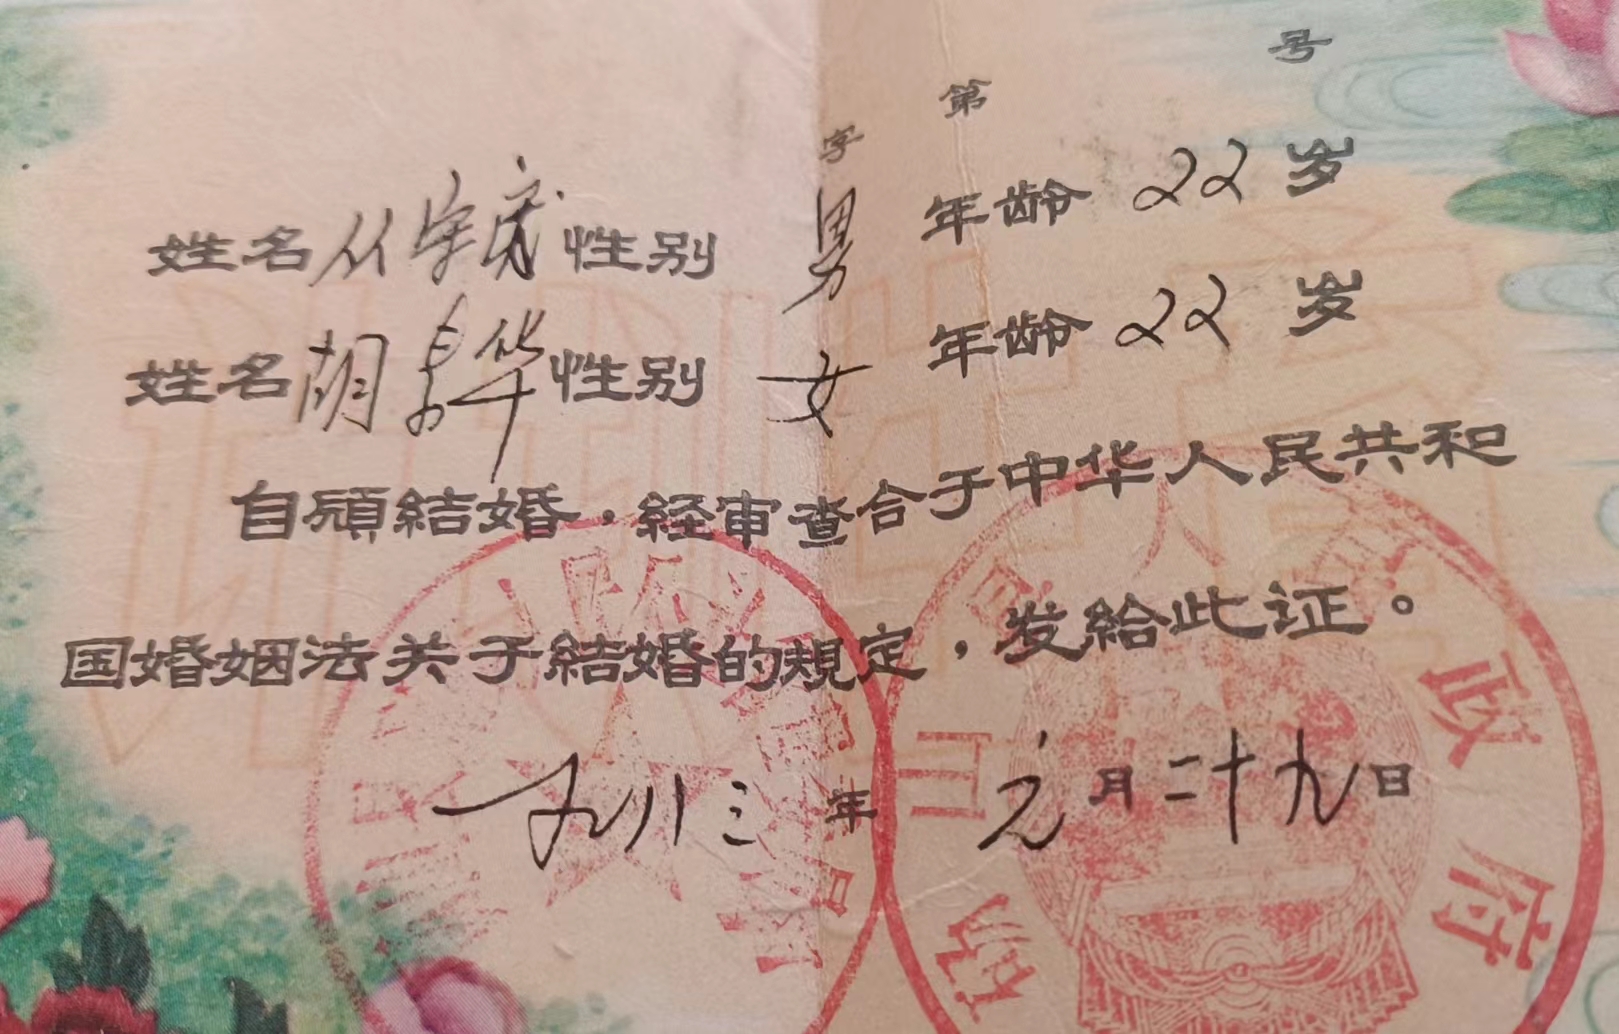 字 第 号
姓名 从 性别 男 年齡 22 岁
姓名 胡 华 性别 女 年齡 22 岁
自願結婚，経审查合于中华人民共和
国婚姻法关于結婚的規定，发給此证。
一九八三年 元月二十九日
政府